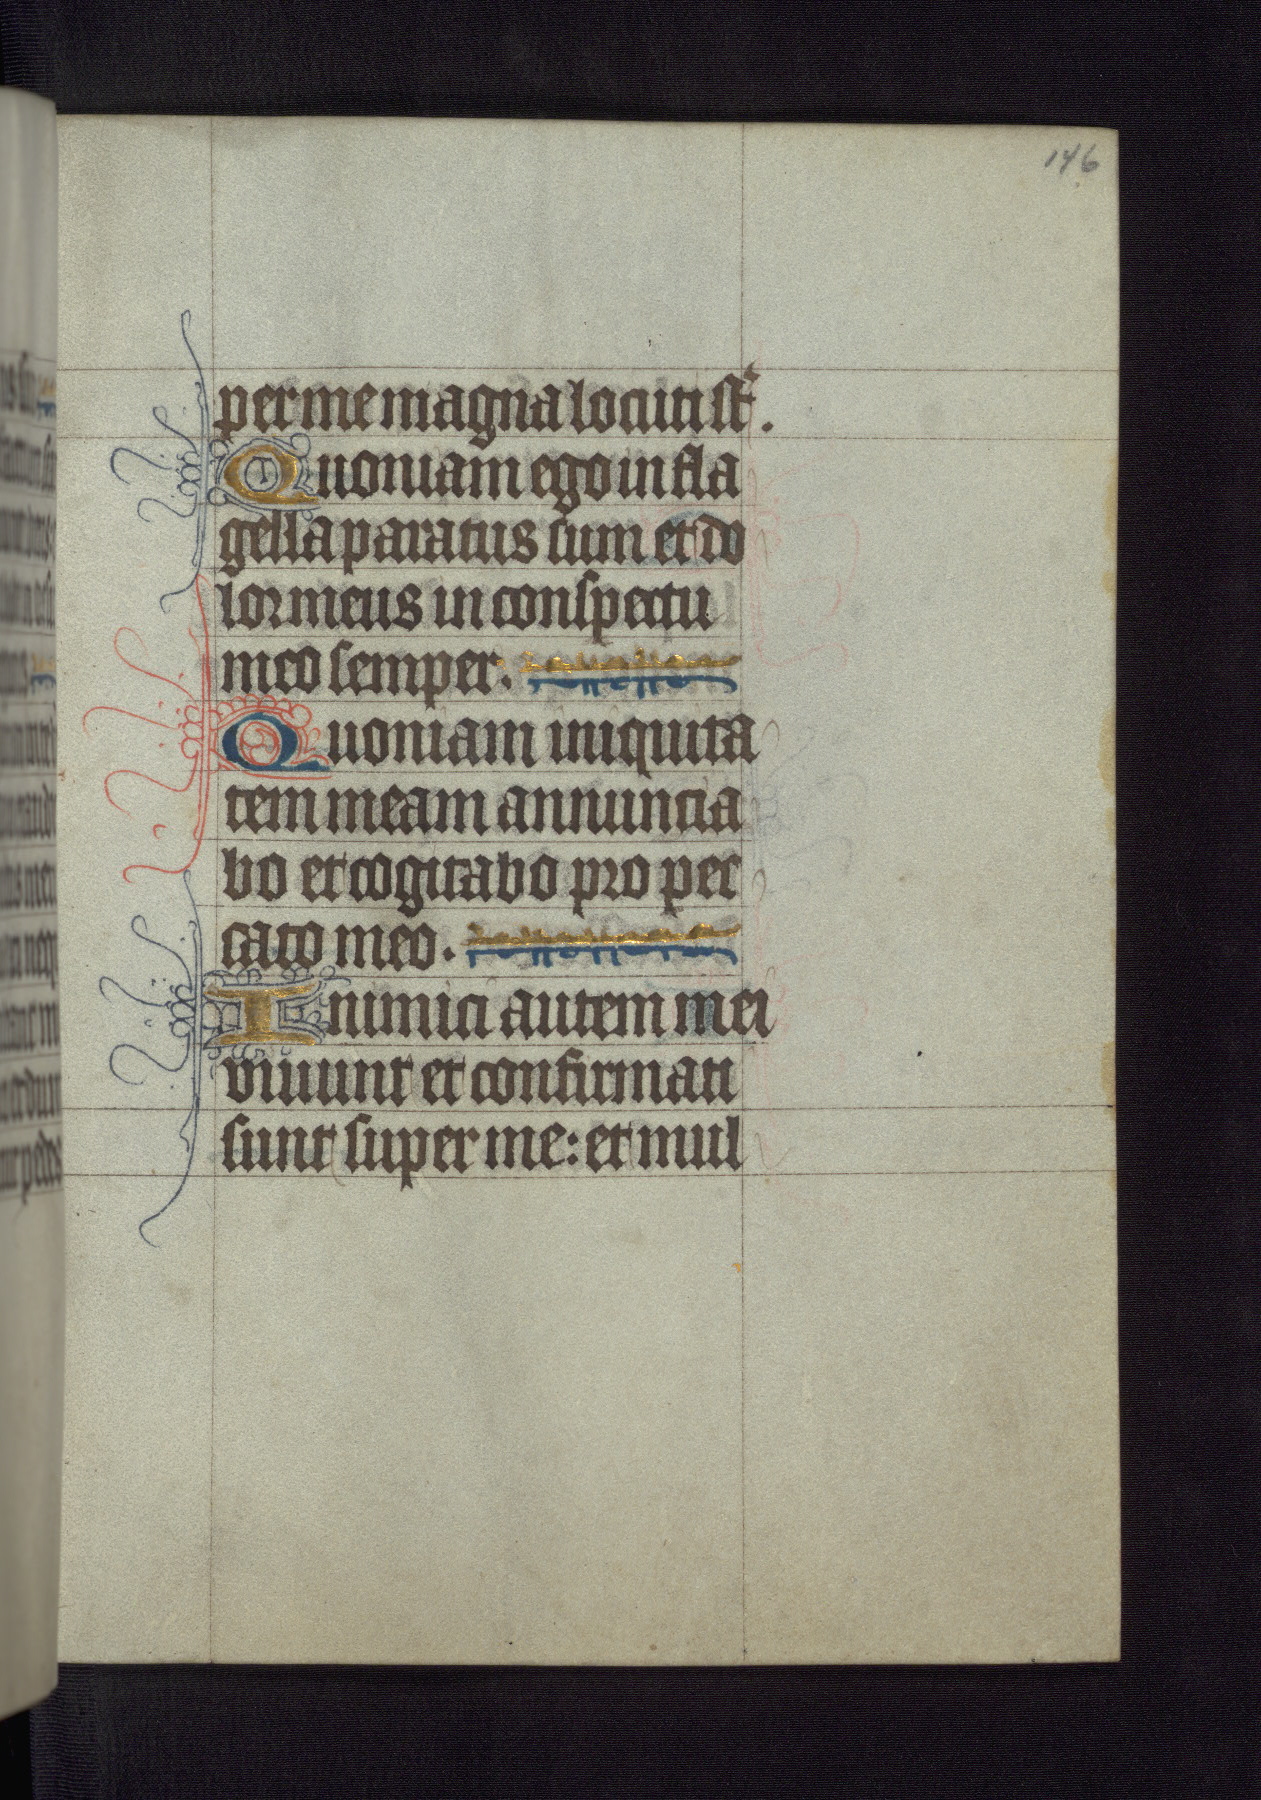 146
per me magna locuti st̃.
Quoniam ego in fla
gella paratus sum et do
lor meus in conspectu
meo semper.
Quoniam iniquita
tem meam annuncia
bo et cogitabo pro pec
cato meo.
Inimici autem mei
viuunt et confirmati
sunt super me: et mul